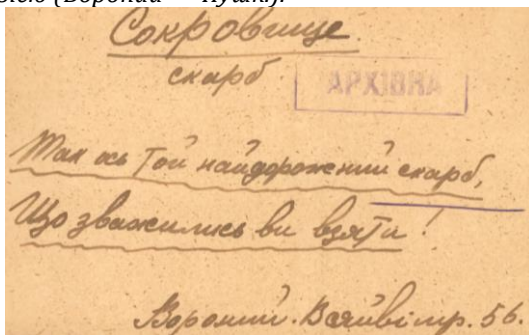 (Вороний
Сокровище.
скарб.
АРХІВНА
Так ось той найдорожчий скарб,
Що зважились ви взяти!
Вороний. В сяйві мр. 56.